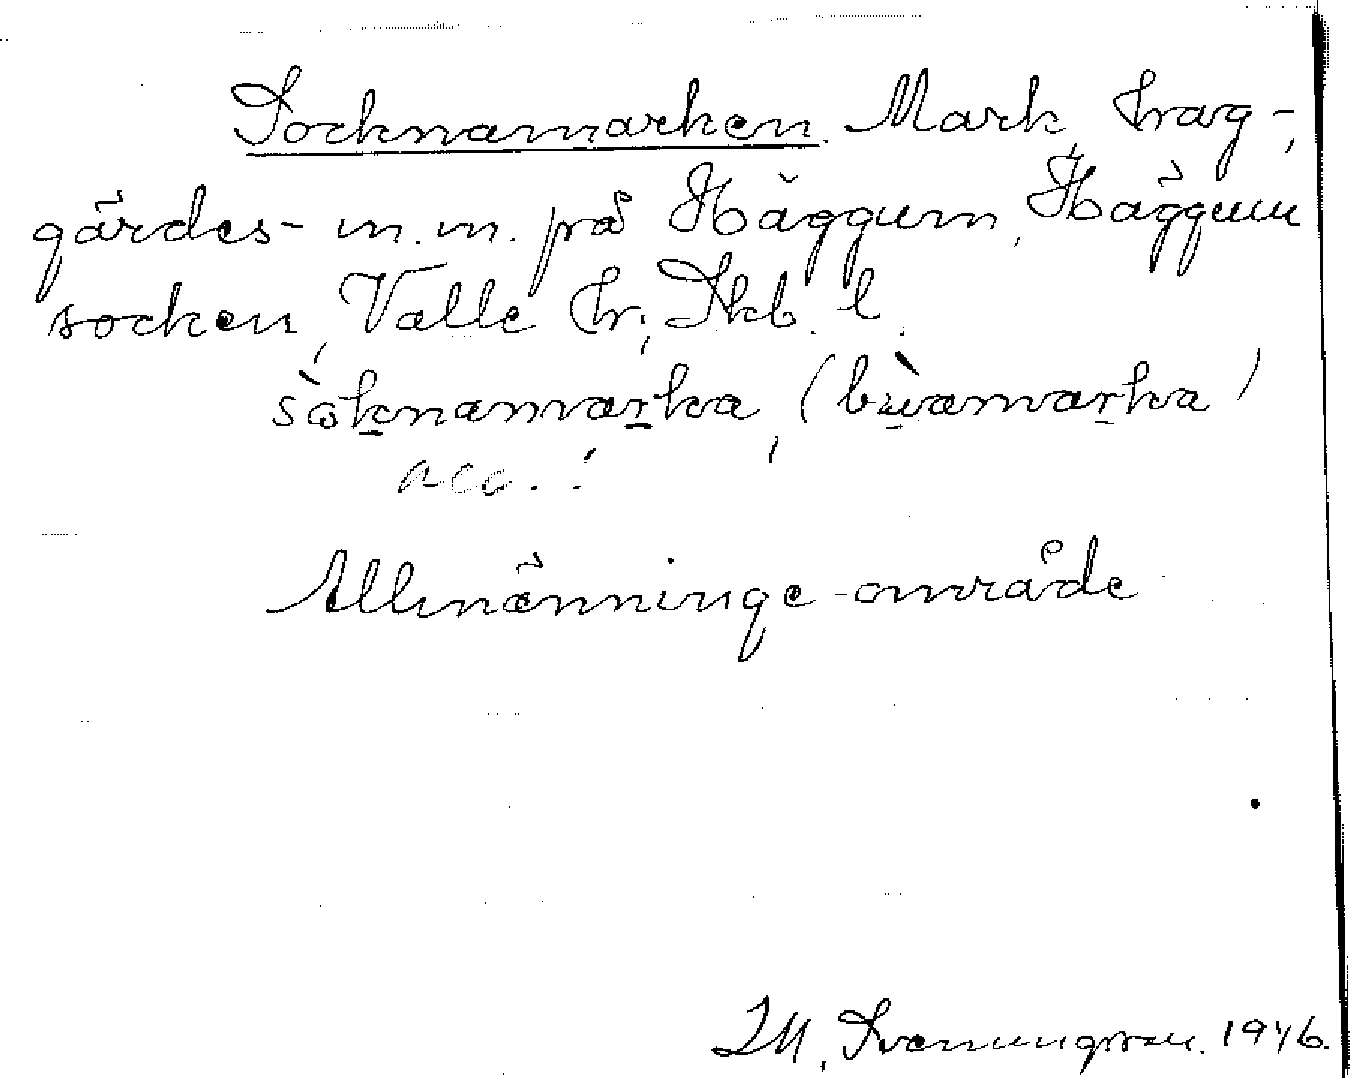 Socknamarken. Mark, hag-,
gärdes- m.m. på Häggum, Häggum
socken, Valle hr, Skb. l.
sòknamarka, (bỳamarka)
acc. !
Allmänninge-område
I. M. Svenungsson. 1946.